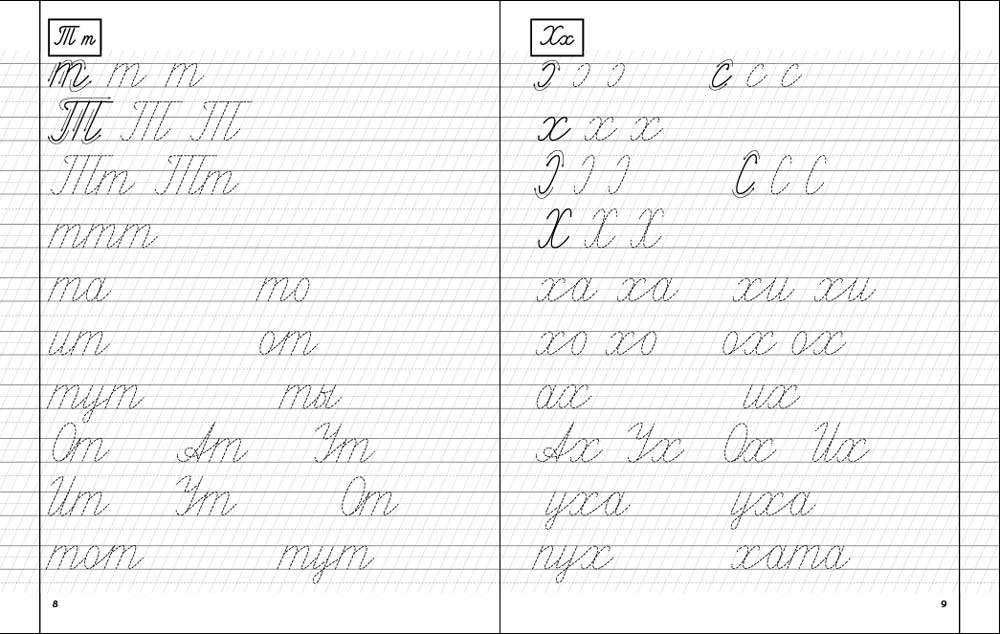 Т т
т т т
Т Т Т
Тт Тт
ттт
та то
ит от
тут ты
От Ат Ут
Ит Ут От
тот тут
8
Хх
ɔ ɔ ɔ с с с
х х х
Ɔ Ɔ Ɔ С С С
Х Х Х
ха ха хи хи
хо хо ох ох
ах их
Ах Ух Ох Их
уха уха
пух хата
9